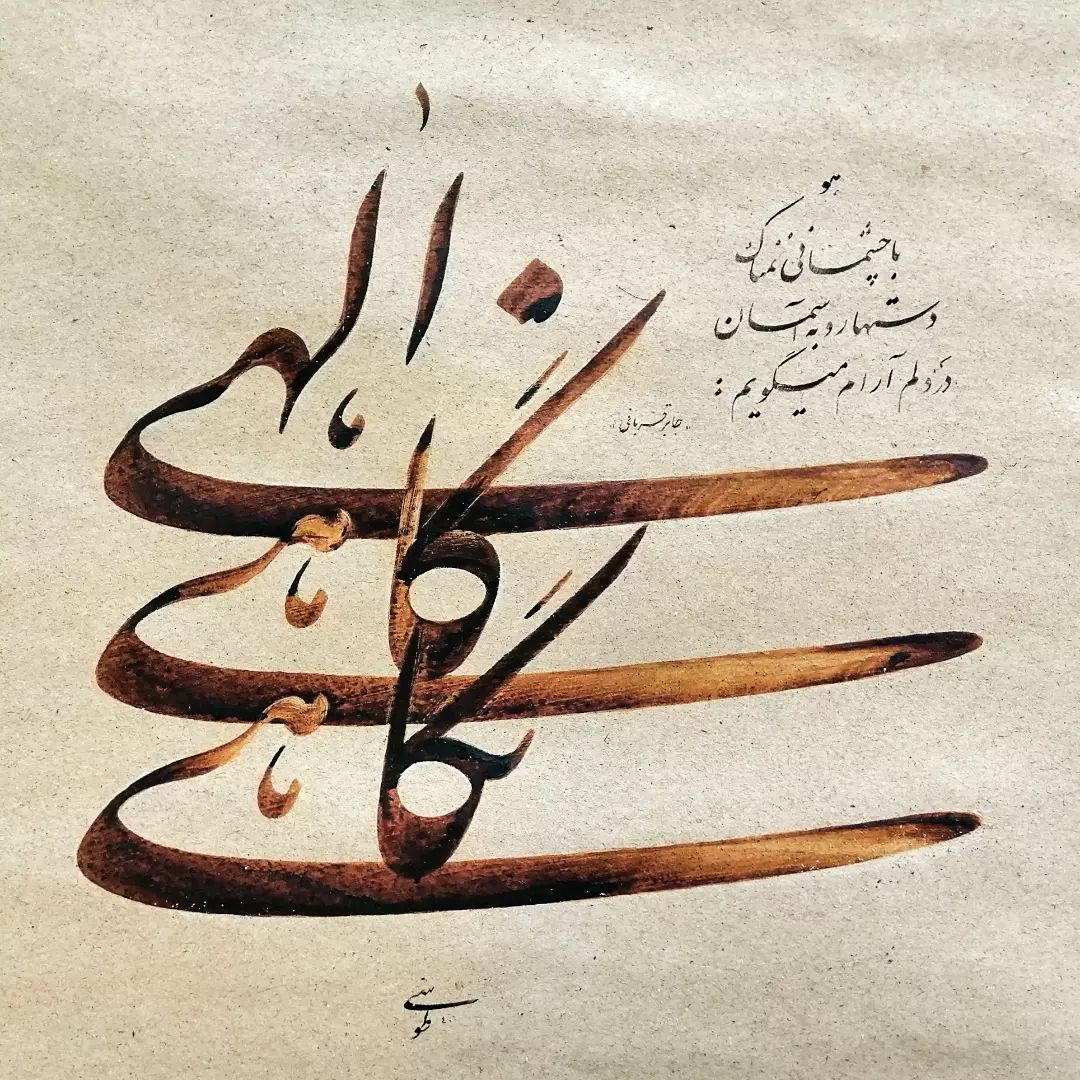 هو
با چشمانی نمناک
دستها رو به آسمان
در دلم آرام میگویم :
«جابر قربانی»
الهی
گاهی
نگاهی
طوسی